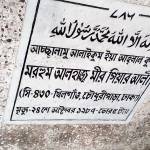 ৭৮৬
لا اله الا الله محمد رسول الله
আচ্ছালামু আলাইকুম ইয়া আহলাল কু
মরহুম আলহাজ্ব মীর পিয়ার আলী
(সি-৪৩০ খিলগাঁও, চৌধুরীপাড়া, ঢাকা)
মৃত্যু-২৪শে অক্টোবর ১৯৮৭